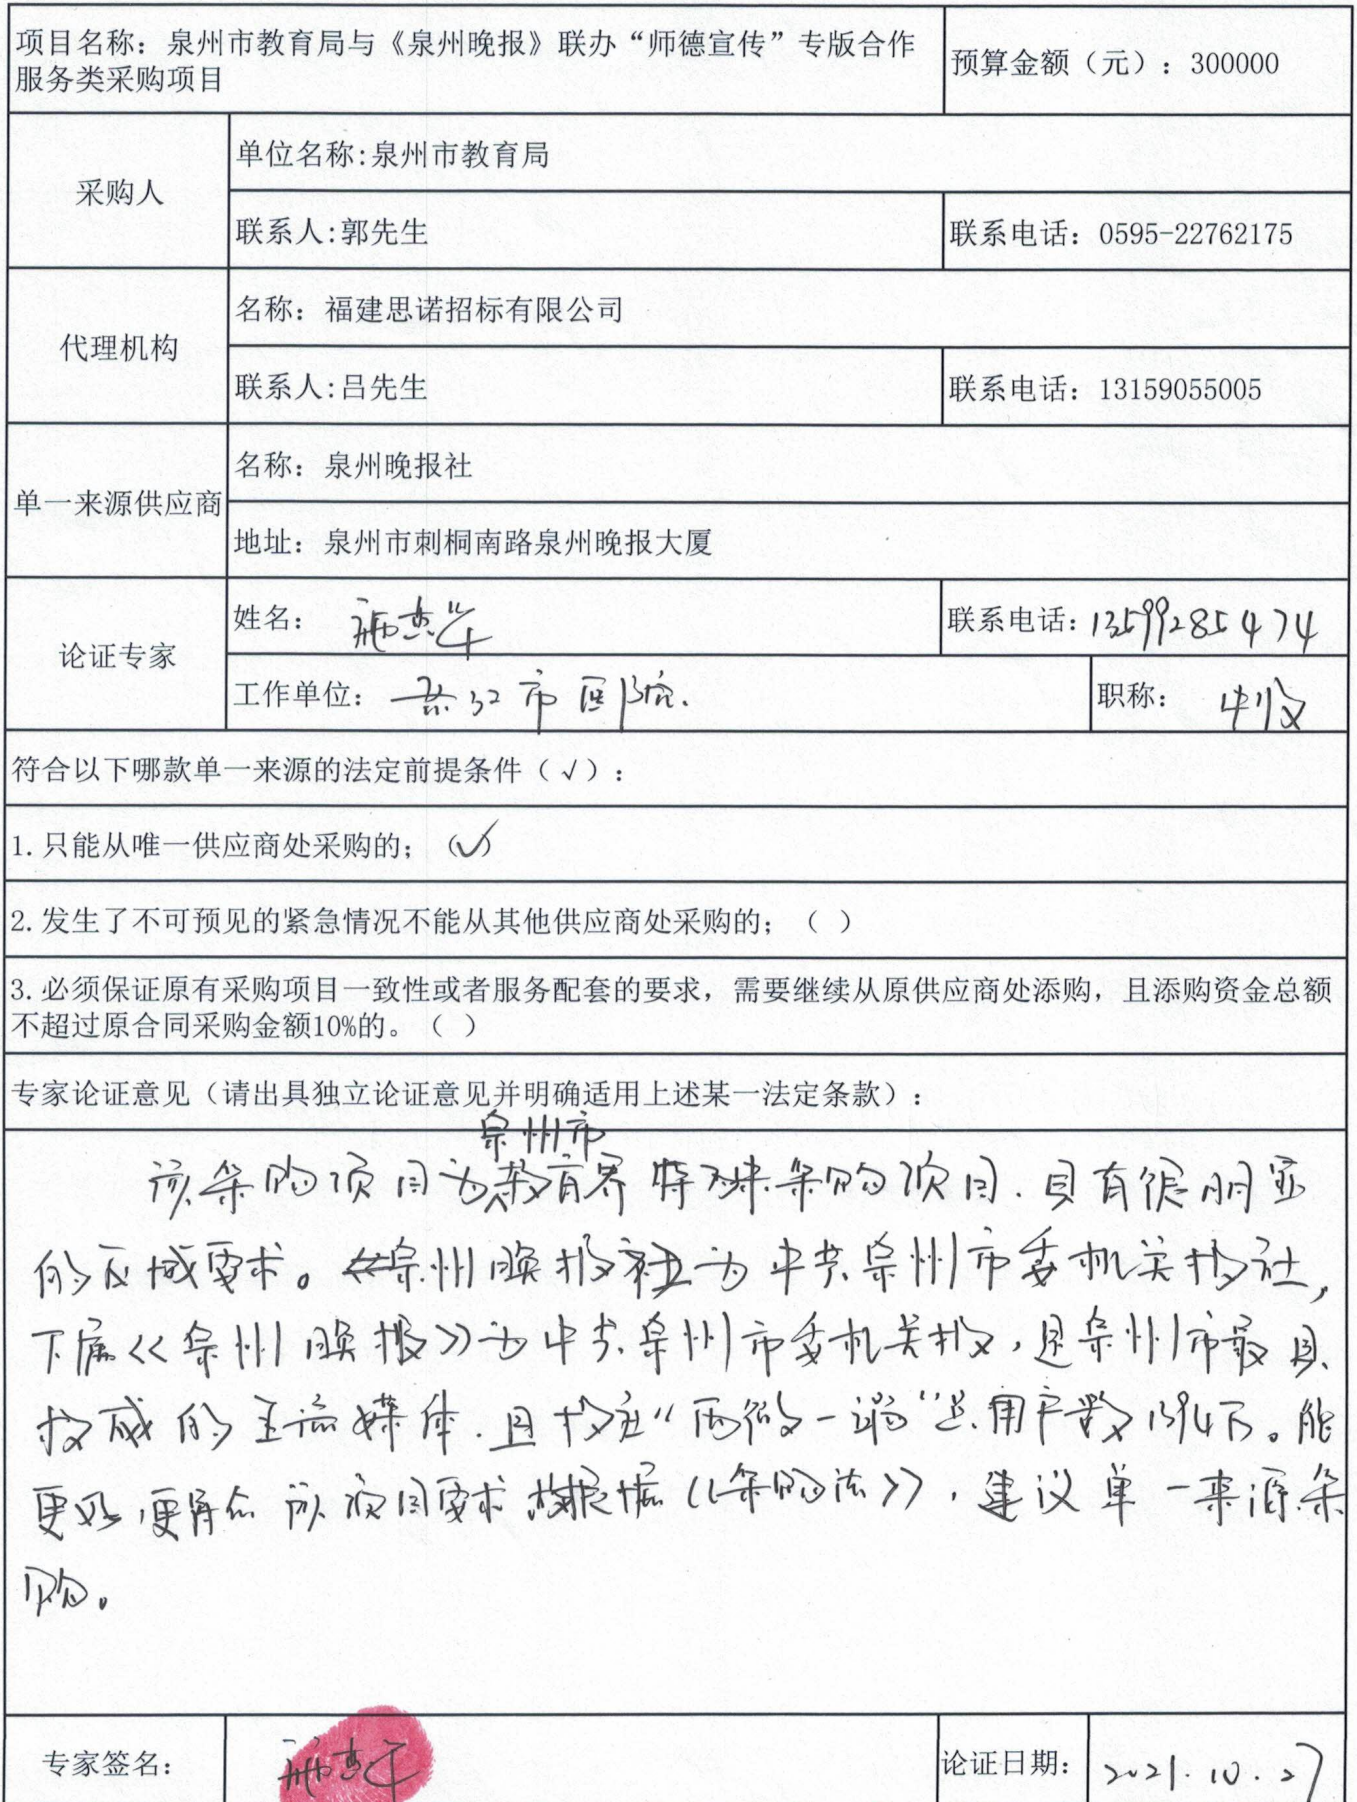 项目名称：泉州市教育局与《泉州晚报》联办“师德宣传”专版合作
服务类采购项目
预算金额（元）：300000
采购人
单位名称:泉州市教育局
联系人:郭先生
联系电话：0595-22762175
代理机构
名称：福建思诺招标有限公司
联系人:吕先生
联系电话：13159055005
单一来源供应商
名称：泉州晚报社
地址：泉州市刺桐南路泉州晚报大厦
论证专家
姓名：
联系电话：13599285474
工作单位： 市医院.
职称：
符合以下哪款单一来源的法定前提条件（√）：
1.只能从唯一供应商处采购的；（✓）
2.发生了不可预见的紧急情况不能从其他供应商处采购的；（ ）
3.必须保证原有采购项目一致性或者服务配套的要求，需要继续从原供应商处添购，且添购资金总额
不超过原合同采购金额10%的。（ ）
专家论证意见（请出具独立论证意见并明确适用上述某一法定条款）：
泉州市
该采购项目为教育界特殊采购项目.具有很明显
的区域要求。泉州晚报社为中共泉州市委机关报社，
下属《泉州晚报》为中共泉州市委机关报，是泉州市最具
权威的主流媒体.且报社“两微一端”总用户数1394万。能
更好,更符合该项目要求 根据《采购法》，建议单一来源采
购。
专家签名：
论证日期：
2021.10.27